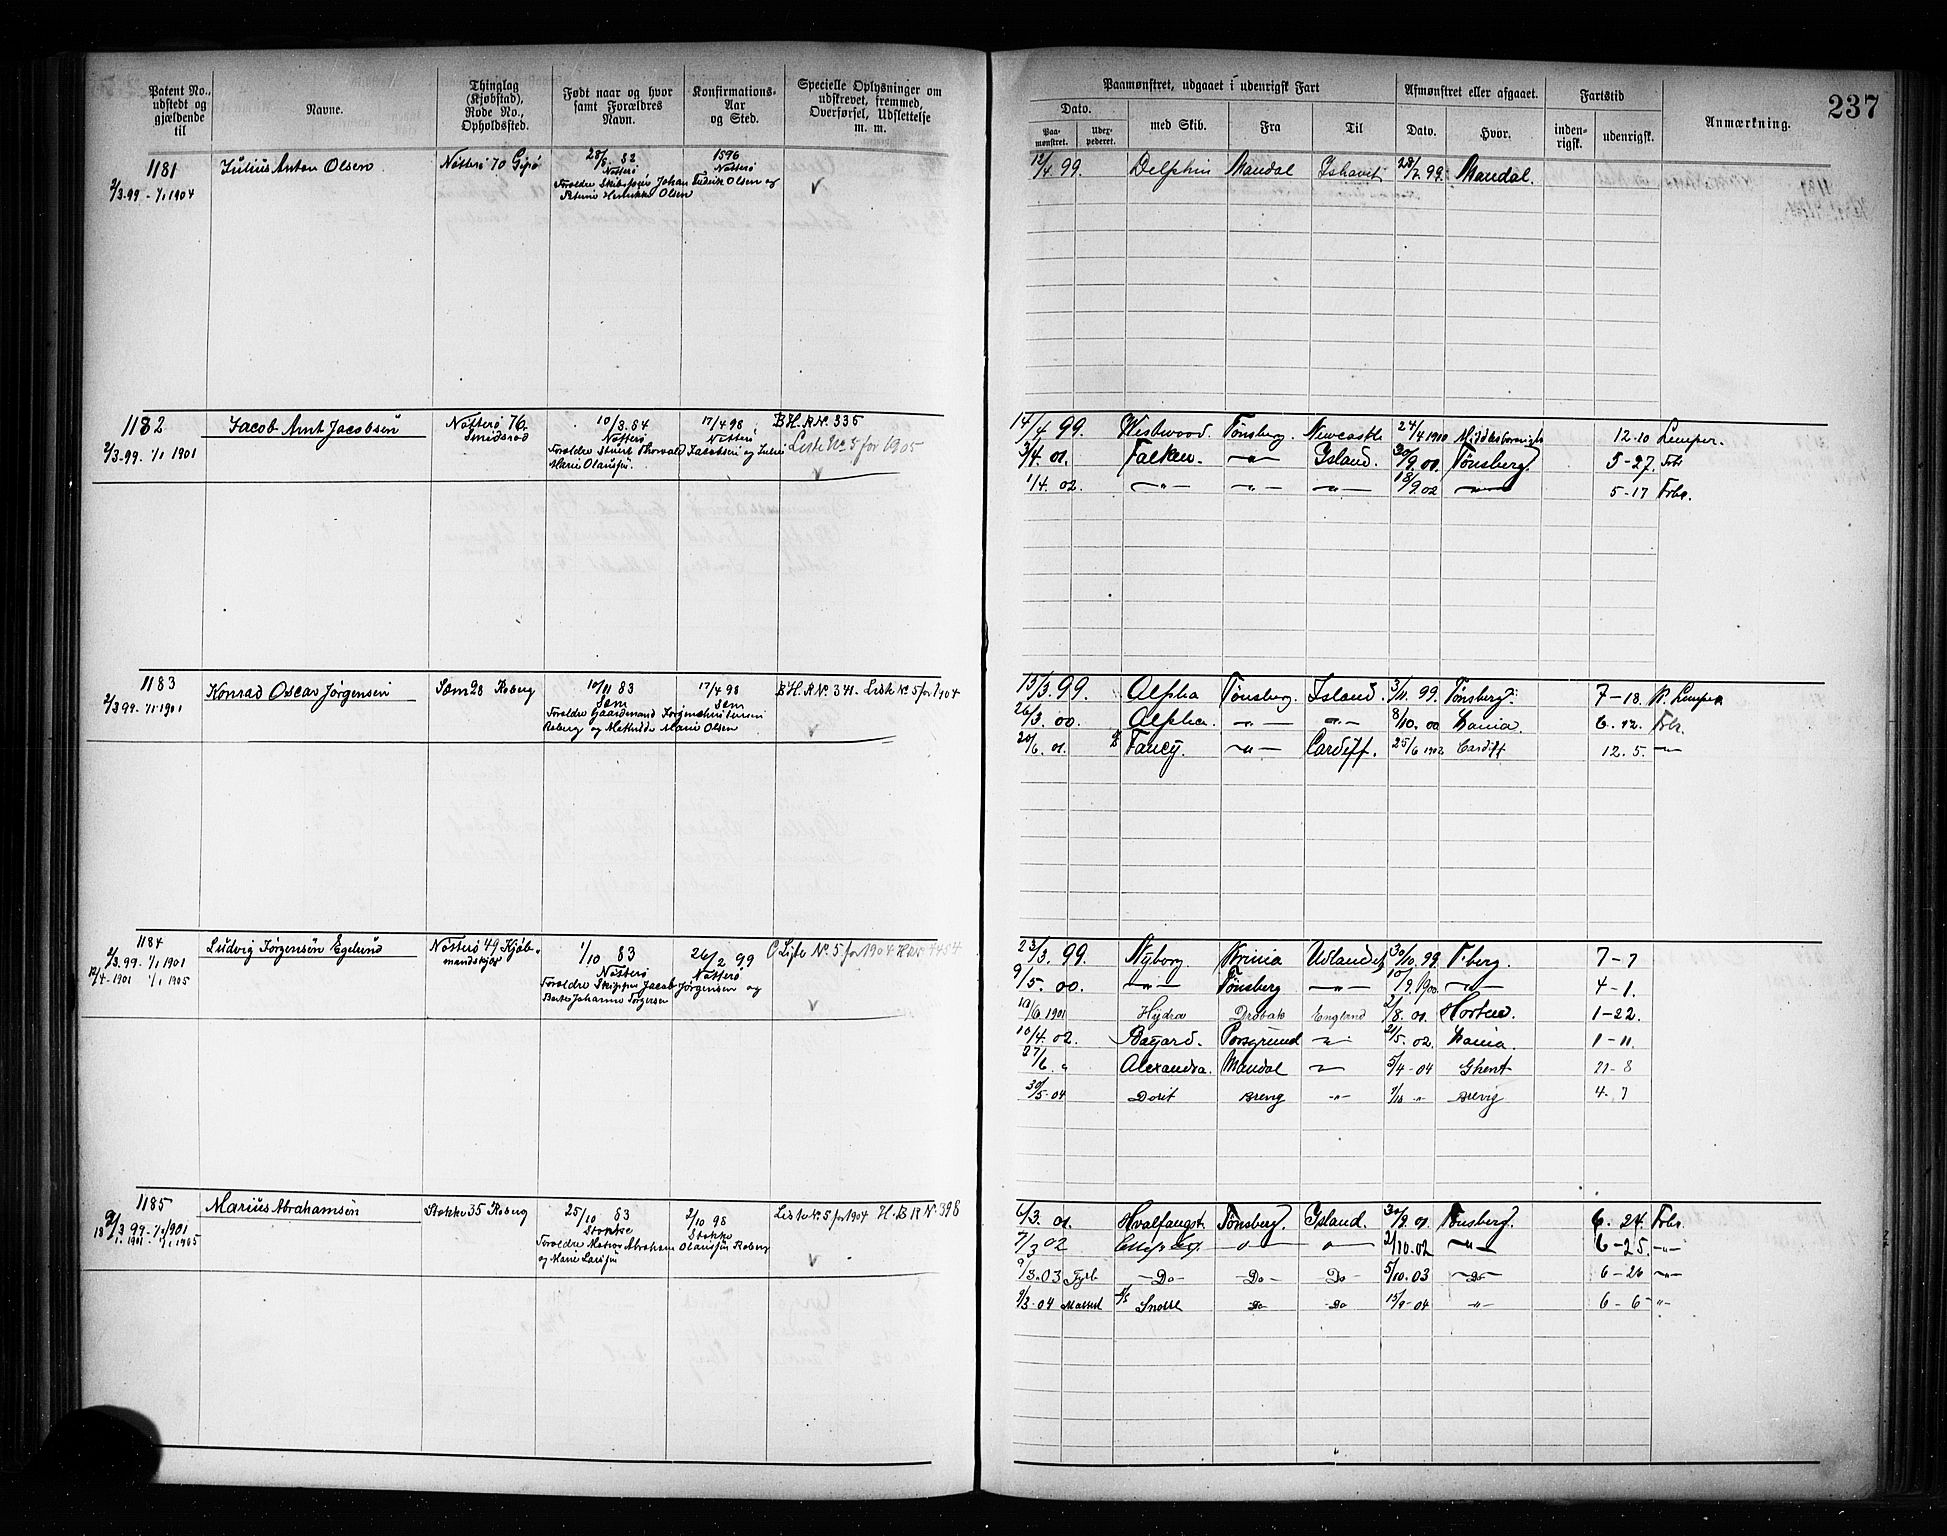 Patent No., udstedt og gjældende til
Navne.
Thinglag (Kjøbstad), Rode No., Opholdssted.
Født naar og hvor samt Forældres Navn.
Konfirmations-Aar og Sted.
Specielle Oplysninger om udskrevet, fremmed, Overførsel, Udslettelse m. m.
Paamønstret, udgaaet i udenrigsk Fart
Dato.
Paa-mønstret.
Udex-pederet.
med Skib.
Fra
Til
Afmønstret eller afgaaet.
Dato.
Hvor.
Fartstid
inden-rigsk.
udenrigsk.
Anmærkning.
237
1181
2/3.99 - 1/1 1904
Julius Anton Olsen
Nøtterø 70 Gipø
28/8 82
Nøtterø
1596
Nøtterø
Forældre Skibsfører Johan Fredrik Olsen og
Petrine Henrikke Olsen
12/4 99. Delphin Mandal Ishavet 28/7 99. Mandal.
1182
2/3.99. 1/1 1901
Jacob Arnt Jacobsen
Nøtterø 76.
Smidsrød
10/3.84
Nøtterø
17/4 98
Nøtterø
Forældre Stuert Thorvald Jacobsen og
Marie Olausen.
B H. R No. 335
Liste No. 5 for 1905
14/4 99. Westwood. Tønsberg. Newcastle 24/4 1900 12-10 Lemper.
3/4. 01. Falken. —"— Island. 30/9. 01. Tønsberg. 5-27. Frbr.
1/4. 02. —"— —"— —"— 18/9.02 —"— 5-17 Frbr.
1183
2/3 99. - 1/1 1901
Konrad Oscar Jørgensen
Sem 28 Roberg
10/11 83
Sem
17/4 98
Sem
Forældre Gaardmand Jørgen Christensen
Roberg og Mathilde Marie Olsen
B H. R No. 341. Liste No. 5 for 1904
15/3.99. Alpha Tønsberg Island. 3/11. 99. Tønsberg. 7-18. P. Lemper
26/3. 00. Alpha. —"— —"— 8/10. 00 Lania. 6.12. Frbr.
20/6. 01. Fancy. —"— Cardiff. 25/6 1902 Cardiff 12.5. —"—
1184
2/3.99. 1/1 1901
12/4-1901 1/1 1905
Ludvig Jørgensen Egelund
Nøtterø 49 Kjøb-
mandskjær
1/10 83
Nøtterø
26/2 99
Nøtterø
Forældre Skipper Jacob Jørgensen og
Berte Johanne Jørgensen
C Liste No. 5 for 1904
23/3. 99. Nyborg. Udlandet 30/10. 99. T.berg. 7-7
9/5. 00. —"— Tønsberg —"— 10/9. 1900. —"— 4-1.
19/6. 1901 Hydra Drøbak England 2/8. 01. Horten. 1-22.
10/4. 02. Bayard. Porsgrund —"— 21/5. 02. Lania. 1-11.
27/6. " Alexandra. Mandal —"— 5/4-04 Ghent 21-8
30/5-04 Dorit Brevig —"— 7/10 -"- Brevig 4. 7
1185
2/3 99. - 1/1 1901
1901 1/1 1905
Marius Abrahamsen
Stokke 35 Roberg
25/10 83
Stokke
2/10 98
Stokke
Forældre Matros Abraham Olaussen Roberg
og Marie Larsen
Liste No. 5 for 1904 H. B R No. 398
6/3. 01. Hvalfangst. Tønsberg. Island. 30/9. 01. Tønsberg. 6. 24. Frbr.
7/3 02 —"— —"— 2/10-02 —"— 6-25. —"—
9/3.03 —Do— Do— Do— 5/10. 03 —Do— 6-26 —"—
9/3-04 Snorre Do Do 15/9-04 —"— 6-6 —"—